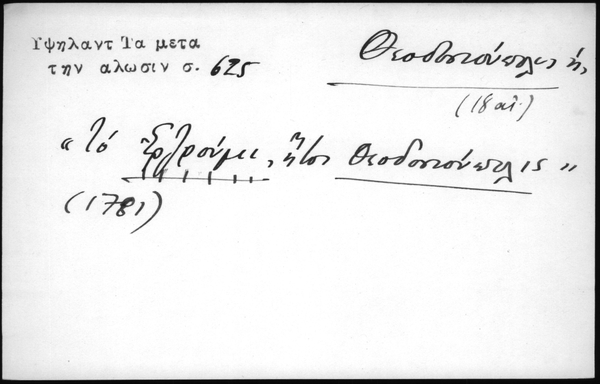 Υψηλαντ Τα μετα
την αλωσιν σ. 625
Θεοδοσιούπολις ἡ,
(18 αἰ.)
“τό Ἐρζρούμι, ἤτοι Θεοδοσιούπολις”
(1781)